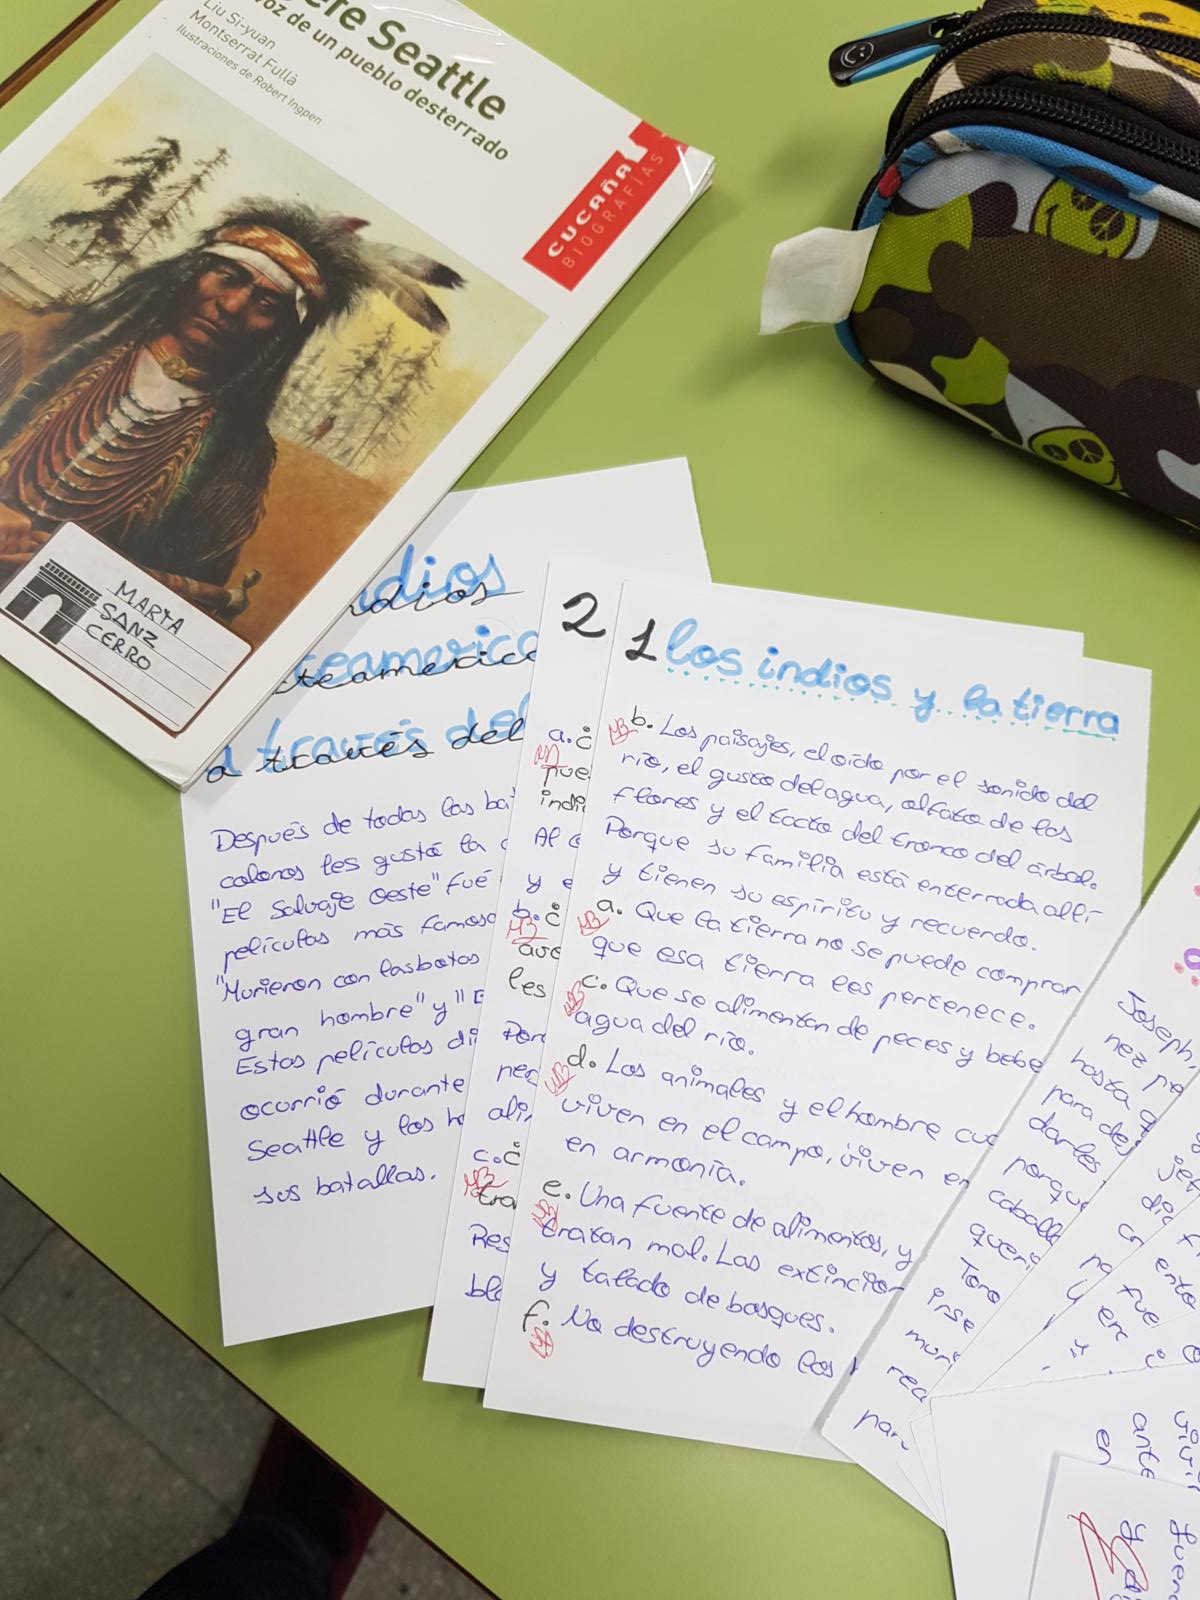 efe Seattle
voz de un pueblo desterrado
Liu Si-yuan
Montserrat Fullà
Ilustraciones de Robert Ingpen
CUCAÑA
BIOGRAFÍAS
MARTA
SANZ
CERRO
ndios
teamerica
a través del
Después de todas las ba
colonos les gustó la
"El Salvaje Oeste" fué
películas más famosa
"Murieron con las botas
gran hombre" y "E
Estas películas di
ocurrió durante
Seattle y los h
sus batallas.
2
a. ¿
pue
indi
Al
y e
b. ¿
les
Porq
ali
c. ¿
tra
Res
bla
1 los indios y la tierra
b. Los paisajes, el oído por el sonido del
río, el gusto del agua, olfato de las
flores y el tacto del tronco del árbol.
Porque su familia está enterrada allí
y tienen su espíritu y recuerdo.
a. Que la tierra no se puede comprar
que esa tierra les pertenece.
c. Que se alimentan de peces y bebe
agua del río.
d. Los animales y el hombre cua
viven en el campo, viven en
en armonía.
e. Una fuente de alimentos, y
tratan mal. Las extincion
y talado de bosques.
f. No destruyendo los
Joseph,
nez pe
hasta q
para dej
darles
porque
caball
queri
Toro
inse
muri
rea
par
jef
di
en
ento
fue
y en
y
ante
en